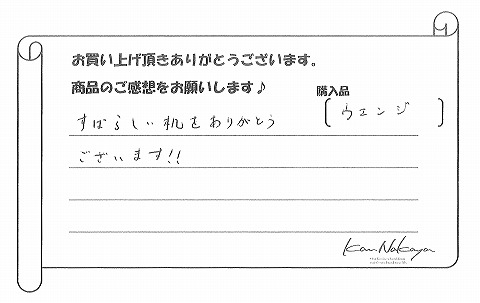 お買い上げ頂きありがとうございます。
商品のご感想をお願いします♪
購入品
[ウエンジ]
すばらしい机をありがとう
ございます!!
Kan Nakaya